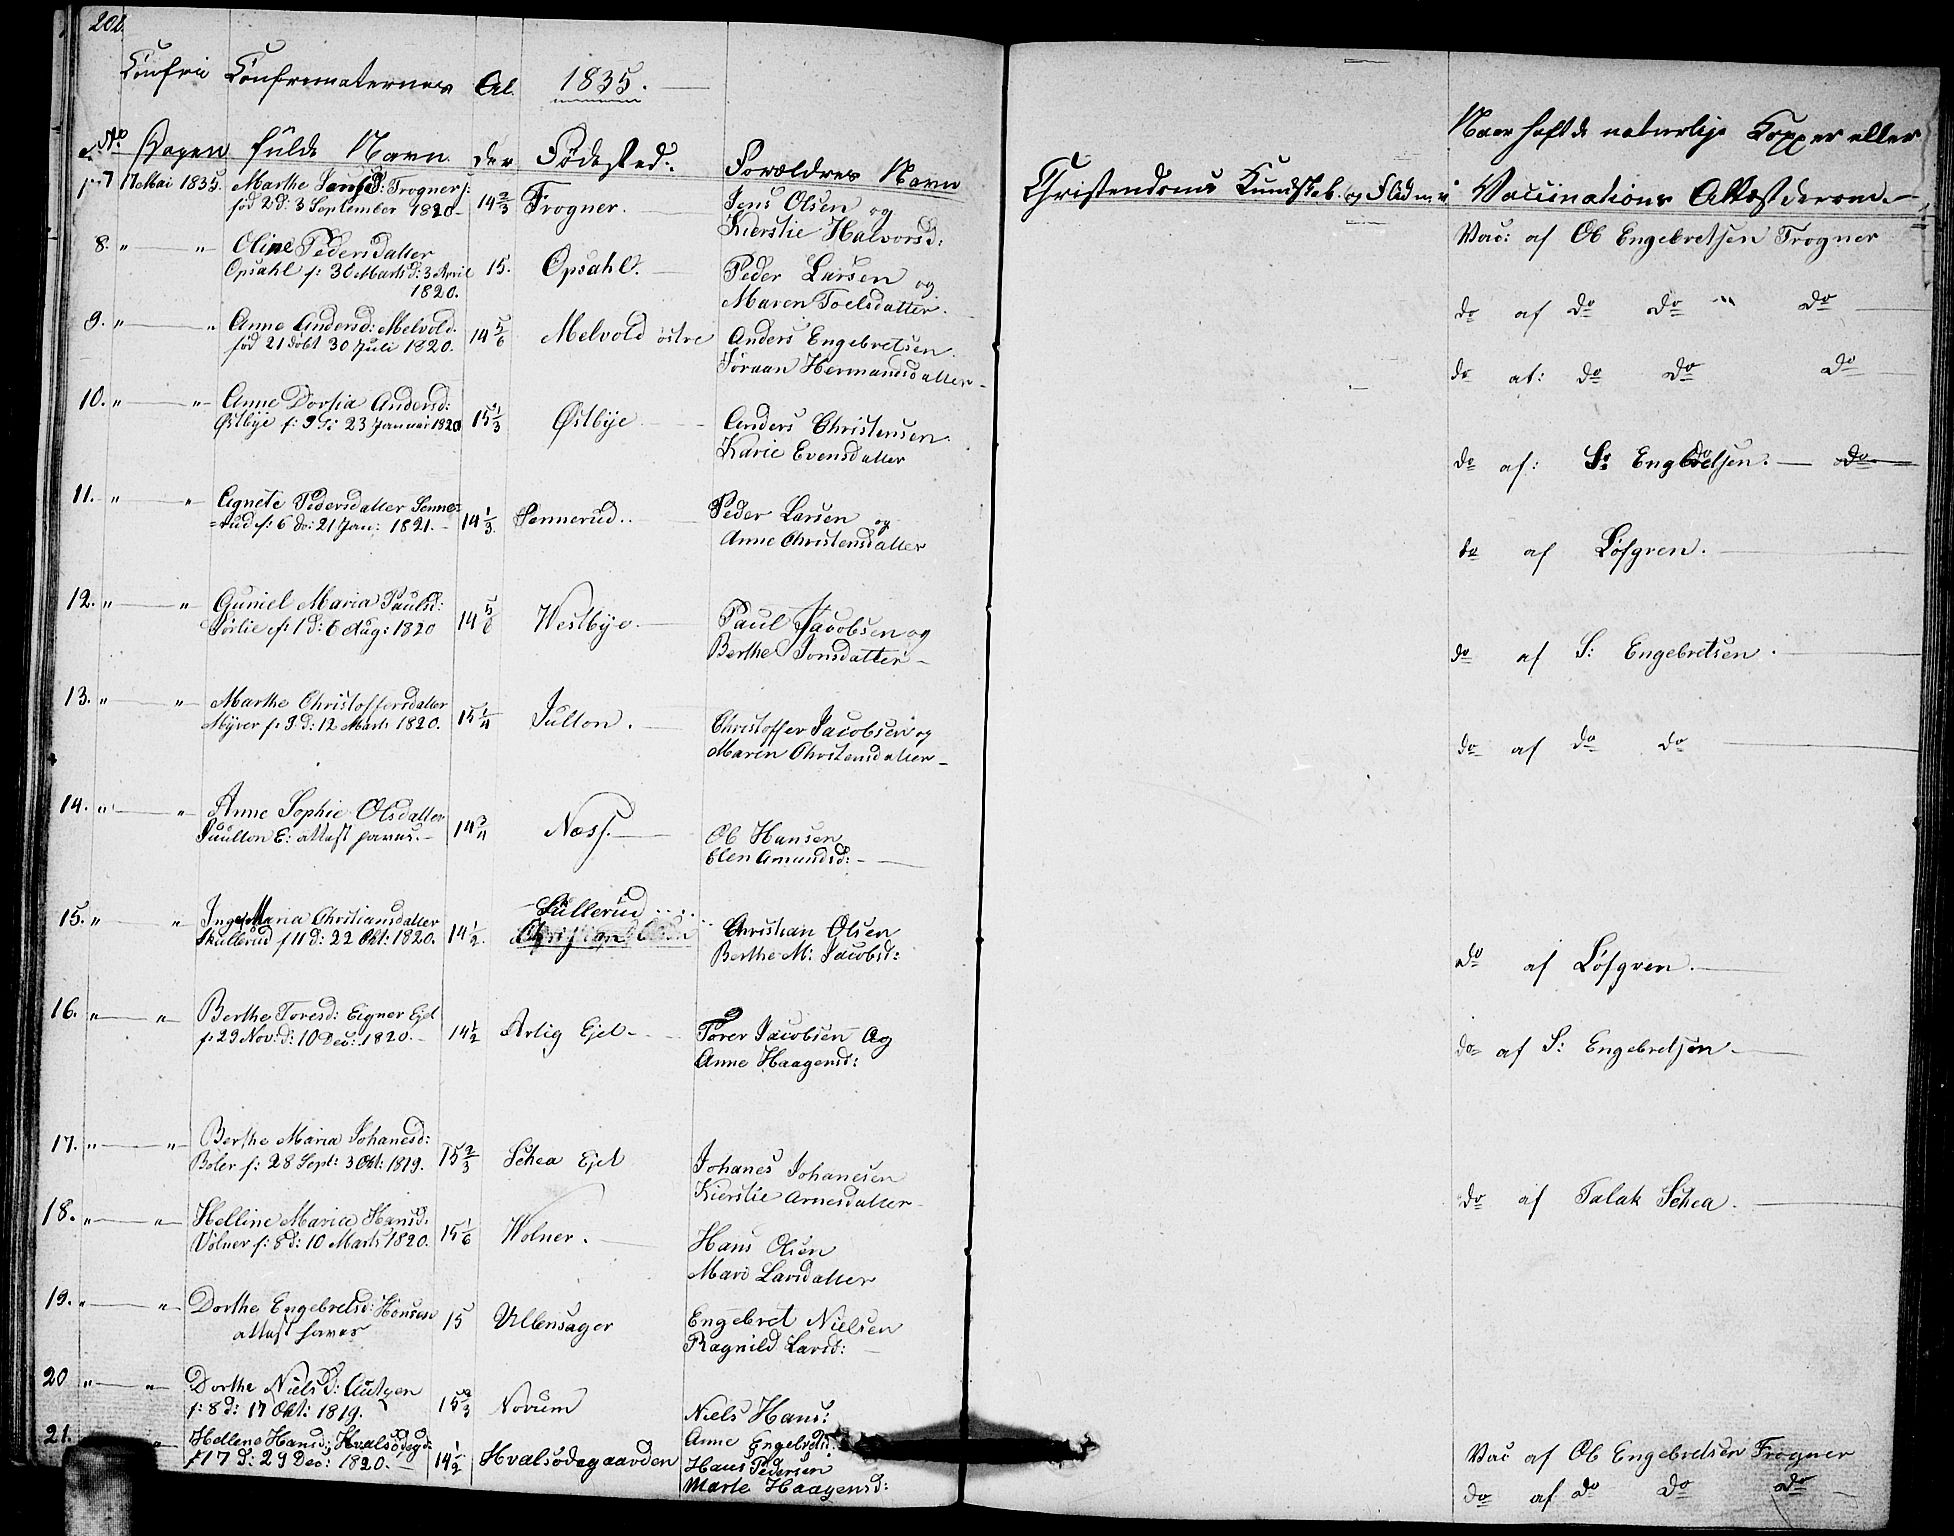 202.
Confir Confirmaternes Al 1835.
No Dagen fulde Navn der Fødested: Forældres Navn
Christendoms Kundskab og Flid
Naar hafte naturlige Kopper eller
Vaccinations Attest
7 17 Mai 1835. Marthe Jensd: Frogner
fød 2 d: 3 September 1820 14 2/3 Frogner. Jens Olsen og
Kierstie Halvorsd:
Vac: af Ole Engebretsen Frogner
8. " " Oline Pedersdatter
Opsahl f: 30 Marts d: 3 April
1820. 15. Opsahl. Peder Larsen og
Maren Toelsdatter.
do af do do " do
9. " " Anne Andersd: Melvold.
fød 21 døbt 30 Juli 1820. 14 5/6 Melvold østre Anders Engebretsen.
Jøraan Hermansdatter
do af: do do do
10. " " Anne Dorthia Andersd:
Østbye f: 9 d: 23 Januar 1820 15 1/3 Østbye Anders Christensen.
Karie Evensdatter
do af: S: Engebretsen. do
11. " " Agnete Pedersdatter Senne=
=rud f: 6 d: 21 Jan: 1821. 14 1/3. Sennerud. Peder Larsen og
Anne Christensdatter
do af Løfgren.
12. " " Guniel Maria Paulsd:
Sørlie f: 1 d: 6 Aug: 1820 14 5/6 Westbye. Paul Jacobsen og
Berthe Jonsdatter
do af S: Engebretsen.
13. " " Marthe Christoffersdatter
Myrer f: 9 d: 12 Marts 1820. 15 1/4 Julton. Christoffer Jacobsen og
Maren Christensdatter
do af do do
14. " " Anne Sophie Olsdatter
Juulton E: attest haves. 14 3/4 Næss. Ole Hansen
Elen Amundsd:
15. " " Inge Maria Christiansdatter
Skullerud f 11 d: 22 Okt: 1820. 14 1/2. Skullerud Christian Olsen
Berthe M: Jacobsd:
do af Løfgren.
16. " " Berthe Toresd: Eigner Ejel
f: 29 Nov: d: 10 Dec: 1820. 14 1/2 Arlig Ejet Torer Jacobsen Og
Anne Haagensd:
do af S: Engebretsen
17. " " Berthe Maria Johanesd:
Boler f: 28 Sept: 3 Okt: 1819. 15 2/3 Schea Ejet Johanes Johanesen
Kierstie Arnesdatter
do af Talak Schea.
18. " " Helline Marie Hansd:
Volner f: 8 d: 10 Marts 1820. 15 1/6 Wolner. Hans Olsen
Mari Larsdatter
19. " " Dorthe Engebretsd: Hansen
attest haves 15 Ullensager Engebret Nielsen
Ragnild Larsd:
20 " " Dorthe Nielsd:
f: 8 d: 17 Okt: 1819. 15 2/3 Novum Niels Hans:
Anne Engebretsd:
Vac af Ole Engebretsen Frogner
21. " Hellene Hansd: Hvalsødegd:
f 17 d: 29 Dec: 1820. 14 1/2 Hvalsødegaarden Hans Pedersen
Marte Haagensd:
do af do do do